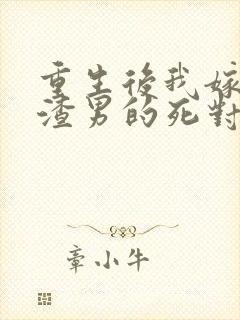 重生後我嫁
渣男的死對
章小牛